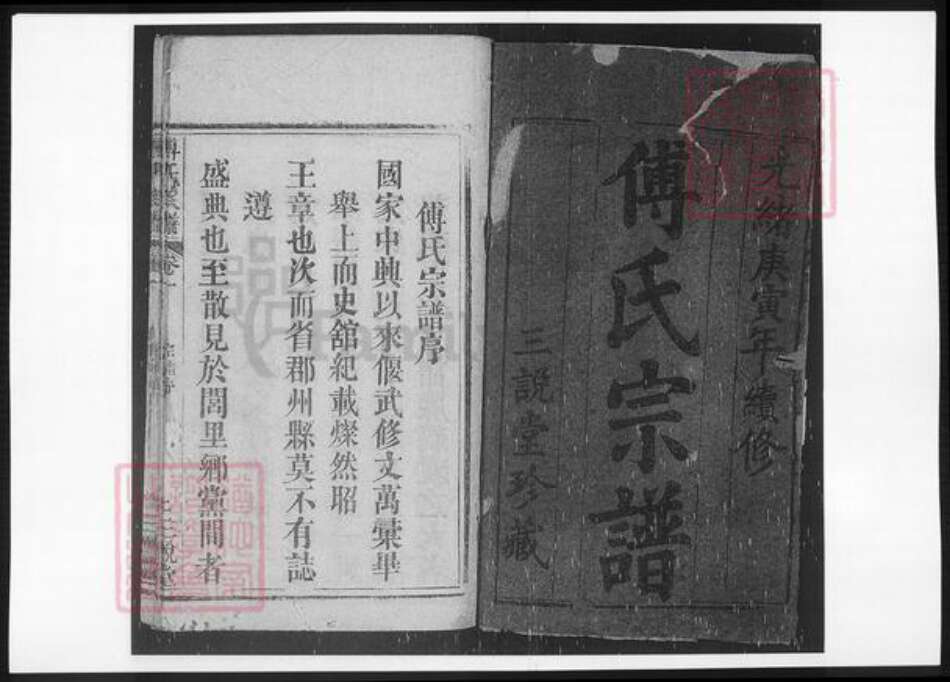 光緒庚寅年續修
傅氏宗譜
三說堂珍藏
傅氏宗譜序
國家中興以來偃武修文萬彙畢
舉上而史舘紀載燦然昭
王章也次而省郡州縣莫不有誌
遵
盛典也至散見於閭里鄉黨間者
傅氏宗譜
卷一
三說堂